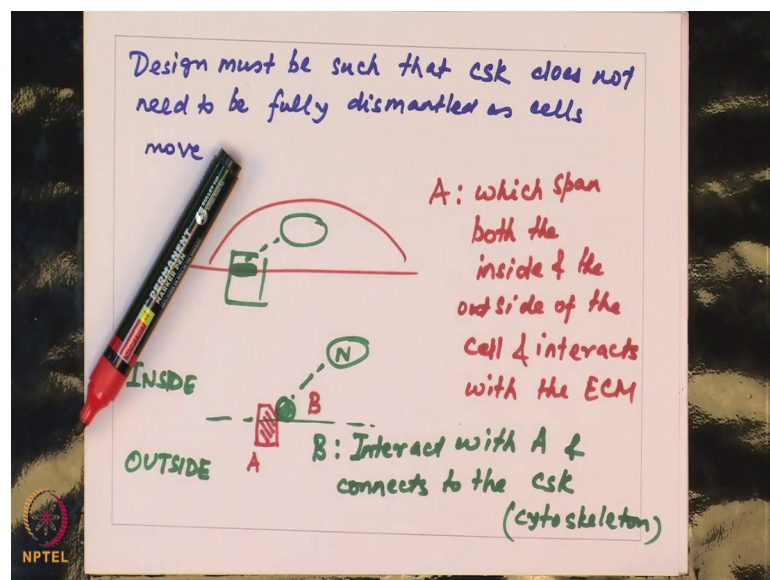 Design must be such that csk does not
need to be fully dismantled as cells
move
A: which span
both the
inside & the
outside of the
cell & interacts
with the ECM
N
INSIDE
B
OUTSIDE
A
B: Interact with A &
connects to the csk
(cytoskeleton)
PERMANENT
MARKER PEN
NPTEL